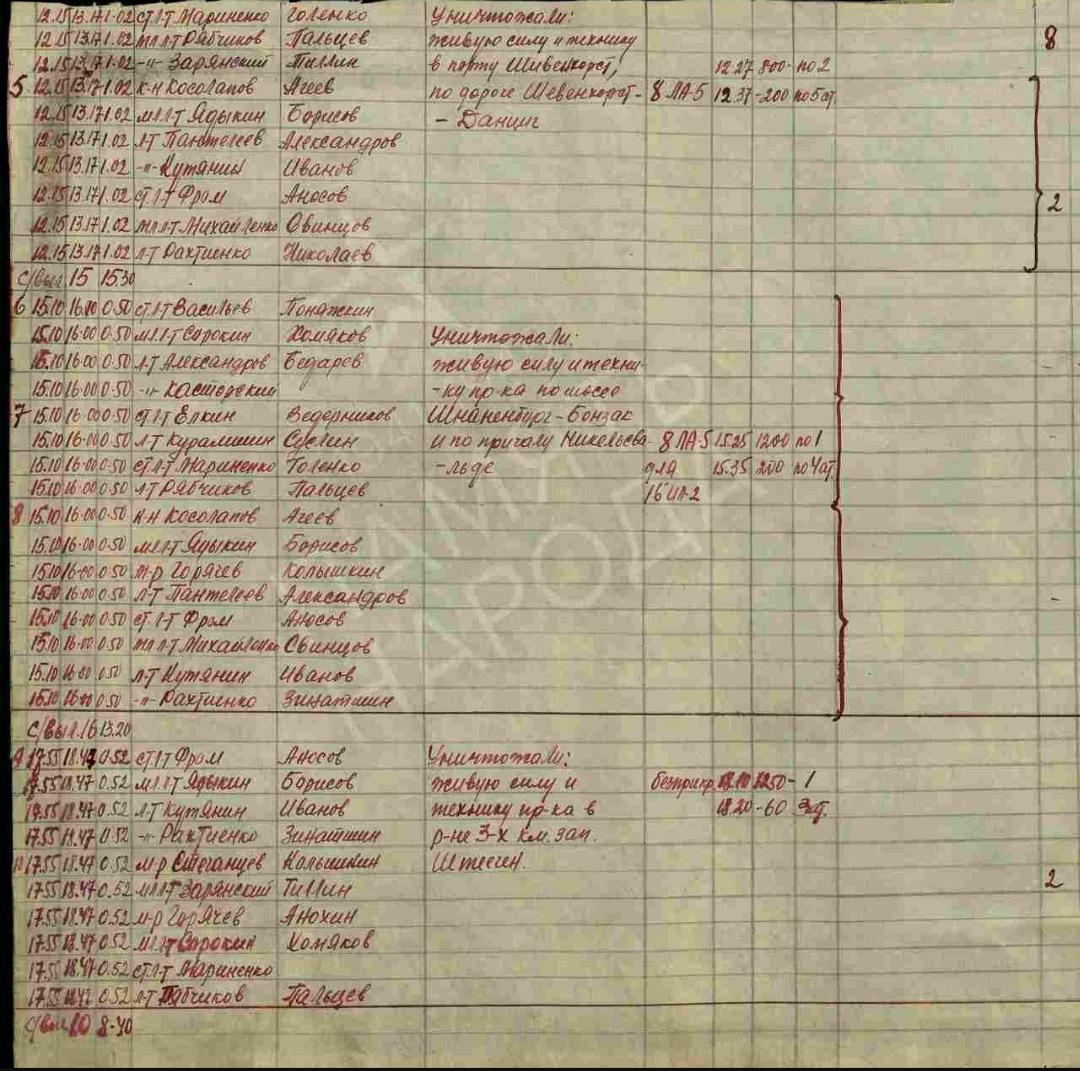 12.15 13.17 1.02 ст.л-т МариненкоГоленко Уничтожали:
12.15 13.17 1.02 мл.л-т Рябчиков Пальцев живую силу и технику 8
12.15 13.17 1.02 -"- Зарянский Тиллин в порту Шивенхорст, 12.27 800- по 2
5 12.15 13.17 1.02 к-н Косолапов Агеев по дороге Шевенхорст- 8 ЛА-5 12.37-200 по 5 ат.
12.15 13.17 1.02 мл.л-т Ядыкин Борисов - Данциг
12.15 13.17 1.02 л-т Пантелеев Александров
12.15 13.17 1.02 -"- Кутянин Иванов
12.15 13.17 1.02 ст.л-т Фром Аносов 2
12.15 13.17 1.02 мл.л-т Михайленко Свинцов
12.15 13.17 1.02 л-т Рахтиенко Николаев
с/выл. 15 15.30
6 15.10 16.00 0.50 ст.л-т Васильев Поняжкин
15.10 16.00 0.50 мл.л-т Сорокин Хомяков Уничтожали:
15.10 16.00 0.50 л-т Александров Бедарев живую силу и техни-
15.10 16.00 0.50 -"- Касторский -ку пр-ка по шоссе
7 15.10 16.00 0.50 ст.л-т Елкин Ведерников Шнаненбург-Бонзак
15.10 16.00 0.50 л-т Курамшин Суслин и по причалу Никельсва- 8 ЛА-5 15.25 1200 по 1
15.10 16.00 0.50 ст.л-т Мариненко Голенко -льде для 15.35 200 по 4 ат.
15.10 16.00 0.50 л-т Рябчиков Пальцев 16 ил-2
8 15.10 16.00 0.50 к-н Косолапов Агеев
15.10 16.00 0.50 мл.л-т Ядыкин Борисов
15.10 16.00 0.50 м-р Горячев Колышкин
15.10 16.00 0.50 л-т Пантелеев Александров
15.10 16.00 0.50 ст.л-т Фром Аносов
15.10 16.00 0.50 мл.л-т Михайленко Свинцов
15.10 16.00 0.50 л-т Кутянин Иванов
15.10 16.00 0.50 -"- Рахтиенко Зинатшин
с/выл. 16 13.20
9 17.55 18.47 0.52 ст.л-т Фром Аносов Уничтожали:
17.55 18.47 0.52 мл.л-т Ядыкин Борисов живую силу и без прикр. 18.10 - 1
17.55 18.47 0.52 л-т Кутянин Иванов технику пр-ка в 18.20-60 3 ат.
17.55 18.47 0.52 -"- Рахтиенко Зинатшин р-не 3-х км. зап.
10 17.55 18.47 0.52 м-р Степанцев Колышкин Штеген.
17.55 18.47 0.52 мл.л-т Зарянский Тиллин 2
17.55 18.47 0.52 м-р Горячев Анохин
17.55 18.47 0.52 мл.л-т Сорокин Хомяков
17.55 18.47 0.52 ст.л-т Мариненко
17.55 18.47 0.52 л-т Рябчиков Пальцев
с/выл 10 8-40
ПАМЯТЬ
НАРОДА